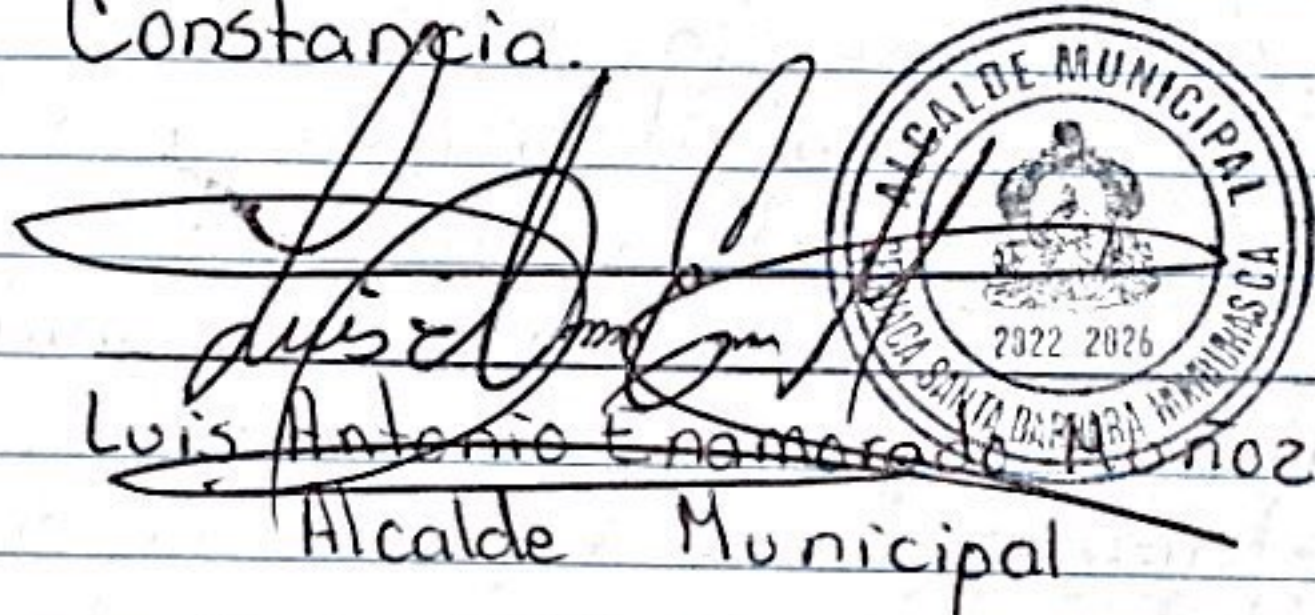 Constancia.
ALCALDE MUNICIPAL
SANTA BARBARA
2022 2026
Luis Antonio Enamorado Muñoz
Alcalde Municipal